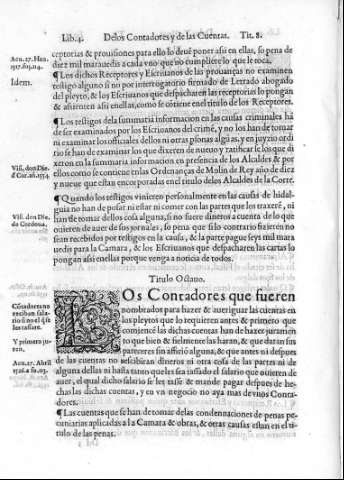 Lib. 4. De los Contadores y de las Cuentas. Tit. 8.
ceptorias & prouisiones para ello lo deuē poner assi en ellas, so pena de
diez mil marauedis a cada vno que no cumpliere lo que le toca.
¶ Los dichos Receptores y Escriuanos de las prouanças no examinen
testigo alguno si no por interrogatorio firmado de Letrado abogado
del pleyto, & los Escriuanos que despacharen las receptorias lo pongan
& assienten assi en ellas, como se cōtiene en el titulo de los Receptores.
Aco. 27. Hen.
1517. fo. 114.
Idem.
¶ Los testigos dela summaria informacion en las causas criminales hā
de ser examinados por los Escriuanos del crimē, y no los han de tomar
ni examinar los officiales dellos ni otras psonas algūas, y en juyzio ordi
rio se han de examinar los que dixeren de nueuo y ratificar se los que di
xeron en la summaria informacion en presencia de los Alcaldes & por
ellos como se contiene en las Ordenanças de Molin de Rey año de diez
y nueue que estan encorporadas en el titulo delos Alcaldes de la Corte.
Visi. don Die.
d Cor. ab. 1534.
¶ Quando los testigos vinieren personalmente en las causas de hidal-
guia no han de posar ni estar ni comer con las partes que los traxerē, ni
han de tomar dellos cosa alguna, si no fuere dineros a cuenta de lo que
ouieren de auer de sus jornales, so pena que si lo contrario fizieren no
sean recebidos por testigos en la causa, & la parte pague seys mil mara
uedis para la Camara, & los Escriuanos que despacharen las cartas lo
pongan assi en ellas porque venga a noticia de todos.
Visi. don Die.
de Cordoua.
Titulo Octauo.
LOs Contadores que fueren
nombrados para hazer & aueriguar las cuentas en
los pleytos que lo requieren antes & primero que
comiencē las dichas cuentas han de hazer juramen
to que bien & fielmente las haran, & que daran sus
paresceres sin afficiō alguna, & que antes ni despues
de las cuentas no rescibiran dineros ni otra cosa de las partes ni de
alguna dellas ni hasta tanto que les sea tassado el salario que ouieren de
auer, el qual dicho salario se les tasse & mande pagar despues de he-
chas las dichas cuentas, y en vn negocio no aya mas de vnos Conta-
dores.
Cōtadores no
reciban sala-
rio si no el q̄ se
les tassare.
Y primero ju-
ren.
Aco. 27. Abril
¶ Las cuentas que se han de tomar de las condennaciones de penas pe-
cuniarias aplicadas a la Camara & obras, & otras causas estan en el ti-
tulo de las penas.